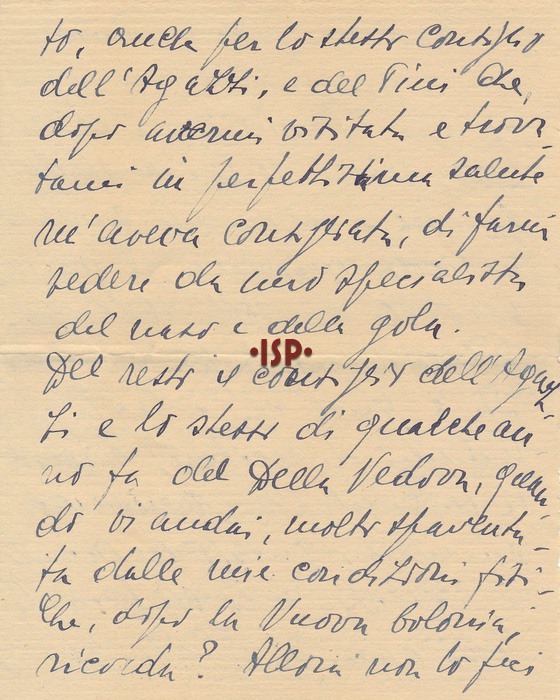 to, anche per lo stesso consiglio
dell'Agazzi, e del Tini che,
dopo avermi visitata e trova-
tami in perfettissima salute
m'aveva consigliata, di farmi
vedere da uno specialista
del naso e della gola.
•ISP•
Del resto il consiglio dell'Agaz-
zi e lo stesso di qualche an-
no fa del Della Vedova, quan-
do vi andai, molto spaventa-
ta dalle mie condizioni fisi-
che, dopo la Nuova bolonia,
ricorda? Allora non lo feci